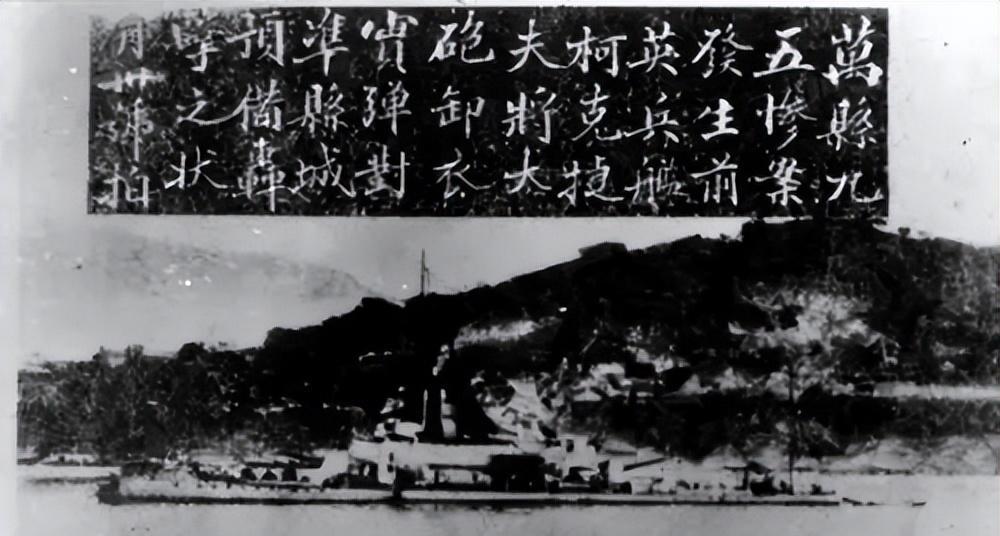 萬縣九
五慘案
發生前
英兵艦
柯克捷
夫將大
砲卸衣
實弹對
準縣城
預備轟
擊之状
月卅號拍